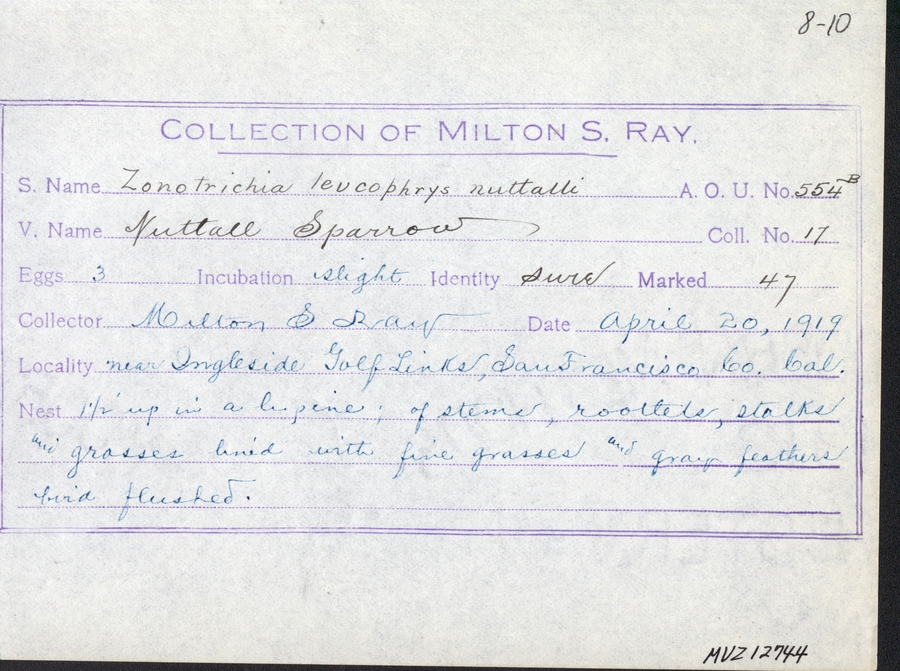 8-10
COLLECTION OF MILTON S. RAY.
S. Name Zonotrichia leucophrys nuttalli A. O. U. No. 554B
V. Name Nuttall Sparrow Coll. No. 17
Eggs 3 Incubation slight Identity sure Marked 47
Collector Milton S Ray Date April 20, 1919
Locality near Ingleside Golf Links, San Francisco Co. Cal.
Nest 1½' up in a lupine; of stems, rootlets, stalks
and grasses lin'd with fine grasses and gray feathers
bird flushed.
MVZ 12744